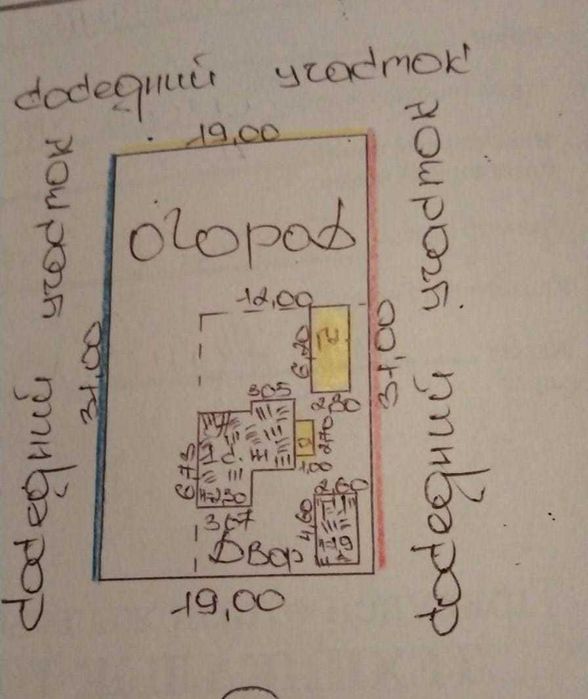 соседний участок
19,00
соседний участок
31,00
огород
12,00
6,20
Г
2,80
31,00
соседний участок
3,05
6,73
2,70
1,00
2,60
4,60
3,67
Двор
19,00